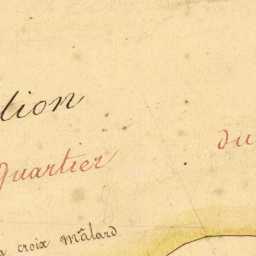 tion
Quartier du
croix mâlard